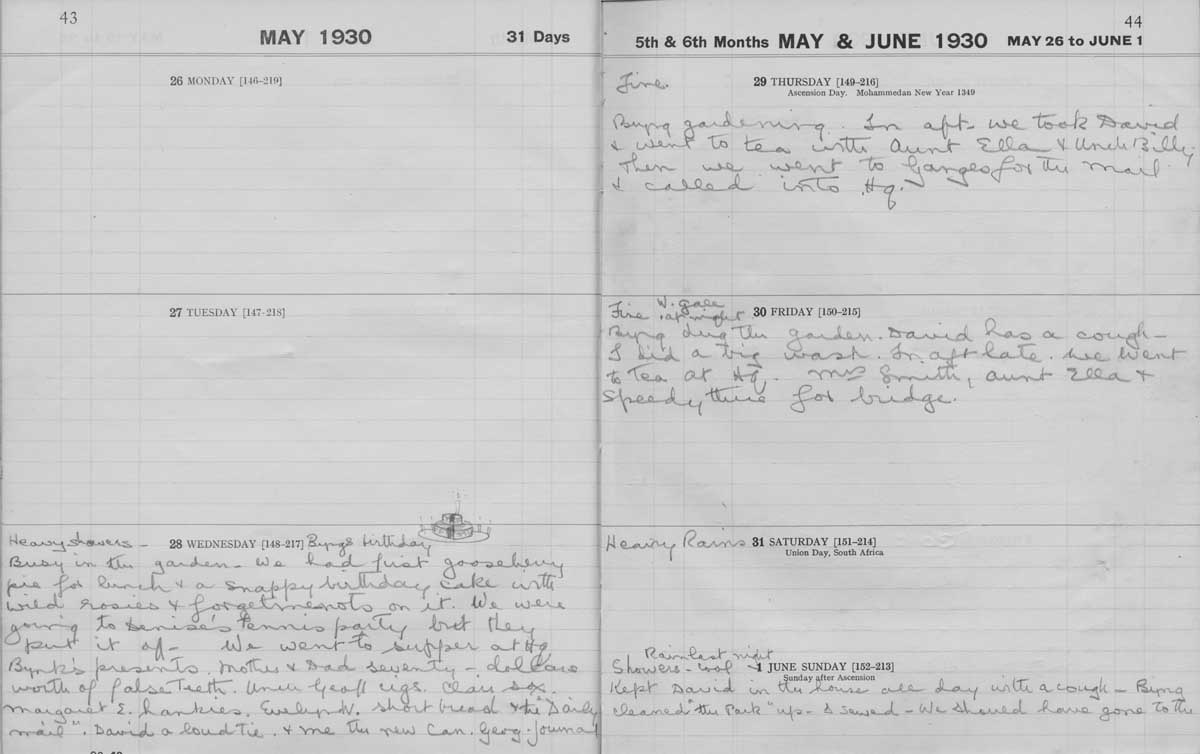 43
MAY 1930
31 Days
26 MONDAY [146-219]
27 TUESDAY [147-218]
Heavy showers - 28 WEDNESDAY [148-217] Byng's birthday
Busy in the garden - We had first gooseberry
pie for lunch & a snappy birthday cake with
wild rosies & forgetmenots on it. We were
going to Denise's tennis party but they
put it off - We went to supper at Hq.
Bynk's presents. Mother & Dad seventy - dollars
worth of false teeth. Uncle Geoff cigs. Clare sox.
Margaret E. hankies, Evelyn V. short bread & the "Daily
mail". David a loud tie. & me the new Can. Geog. Journal
44
5th & 6th Months MAY & JUNE 1930 MAY 26 to JUNE 1
Fine. 29 THURSDAY [149-216]
Ascension Day. Mohammedan New Year 1349
Byng gardening. In aft. we took David
& went to tea with Aunt Ella & Uncle Billy.
Then we went to Ganges for the mail
& called into Hq.
Fine W. gale at night 30 FRIDAY [150-215]
Byng dug the garden. David has a cough -
I did a big wash. In aft late. we went
to tea at Hq. Mrs Smith, Aunt Ella &
Speedy there for bridge.
Heavy Rains 31 SATURDAY [151-214]
Union Day, South Africa
Rain last night
Showers - cool 1 JUNE SUNDAY [152-213]
Sunday after Ascension
Kept David in the house all day with a cough - Byng
cleaned "the Park" up - I sewed - We should have gone to the